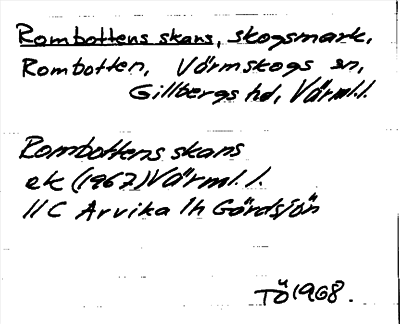 Rombottens skans, skogsmark,
Rombotten, Värmskogs sn,
Gillbergs hd, Värml.l.
Rombottens skans
ek (1967) Värml. l.
11C Arvika 1h Gårdsjön
TÖ 1968.